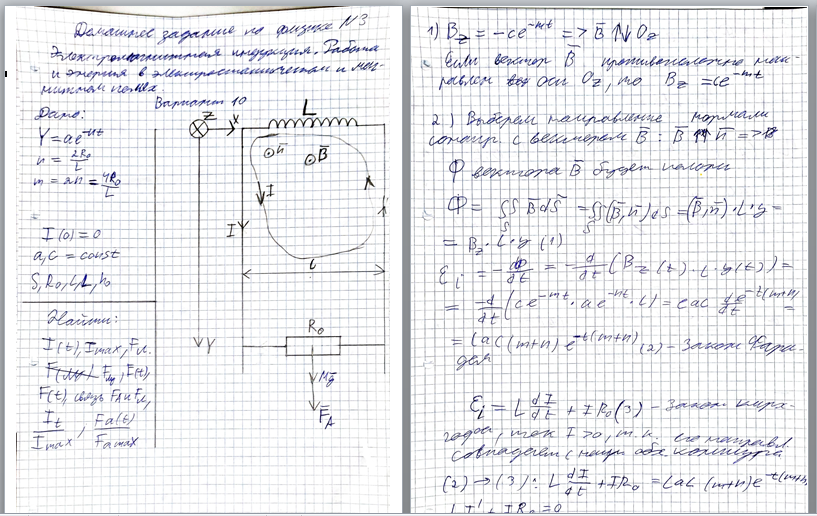 Домашнее задание по физике №3
Электромагнитная индукция. Работа
и энергия в электростатическом и маг-
нитном полях
Вариант 10
Дано:
Y = ae^-nt
n = 2R₀/L
m = 2n = 4R₀/L
I(0) = 0
a, c = const
Найти:
I(t), Imax, Fл.
F(t),
F(t), связь
I_t/I_max, Fa(t)/Fa max
Z
X
L
n̄
B̄
I
I
l
R₀
Y
Mḡ
F̄_A
1) B_z = -ce^-mt => B̄ ↑↓ O_z
если вектор B̄ противоположно нап-
равлен оси O_z, то B_z = ce^-mt
2) Выберем направление нормали
сонапр. с вектором B̄ : B̄ ↑↑ n̄ =>
Ф вектора B̄ будет полож
Ф = ∬ B̄ dS̄ = ∬(B̄, n̄) dS = (B̄, n̄)·L·y =
= B_z·L·y (1)
ℰ_i = -dФ/dt = -d/dt (B_z(t)·L·y(t)) =
= -d/dt (ce^-mt · ae^-nt · L) = caL de^-t(m+n)/dt =
= LaC(m+n) e^-t(m+n) (2) - Закон Фара-
дея
ℰ_i = L dI/dt + IR₀ (3) - Закон Кирх-
гофа, ток I>0, т.к. его направл.
совпадает с напр. обх. контура
(2) → (3) : L dI/dt + IR₀ = LaC (m+n)e^-t(m+n)
LI' + IR₀ = 0